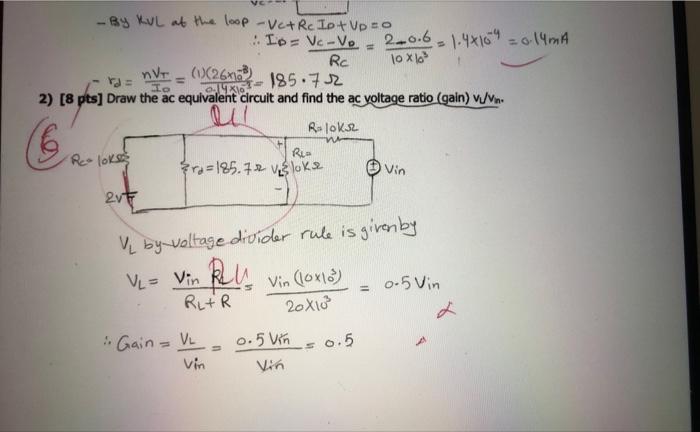 - By KVL at the loop -Vc+Rc ID+VD=0
∴ ID = Vc-VD / Rc = 2-0.6 / 10×10³ = 1.4×10⁻⁴ = 0.14mA
- rd = nVT / ID = (1)(26×10⁻³) / 0.14×10⁻³ = 185.7Ω
2) [8 pts] Draw the ac equivalent circuit and find the ac voltage ratio (gain) VL/Vin.
R=10KΩ
Rc=10KΩ
rd=185.7Ω
VL
RL=
10KΩ
+
-
Vin
2V
VL by voltage divider rule is given by
VL = Vin RL / RL+R = Vin (10×10³) / 20×10³ = 0.5 Vin
∴ Gain = VL / Vin = 0.5 Vin / Vin = 0.5